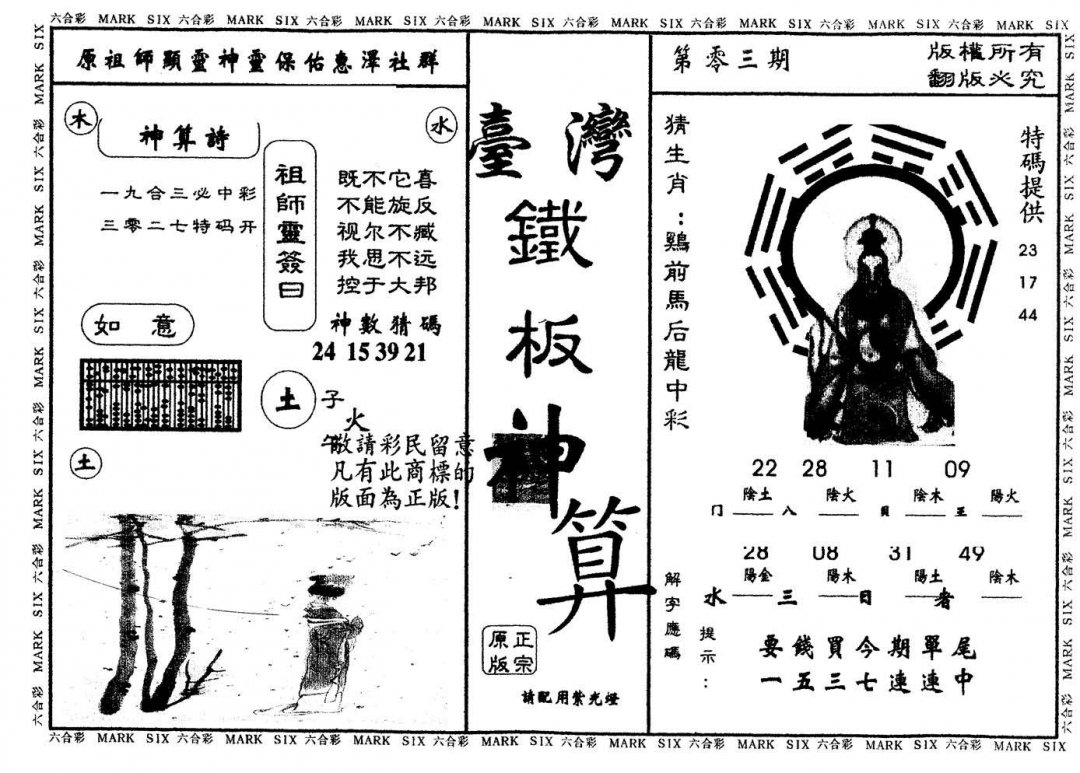 六合彩 MARK SIX 六合彩 MARK SIX 六合彩 MARK SIX 六合彩 MARK SIX 六合彩 MARK SIX 六合彩 MARK SIX 六合彩 MARK SIX 六合彩 MARK SIX
原祖師顯靈神靈保佑惠澤社群
木
神算詩
水
一九合三必中彩
三零二七特码开
祖師靈簽曰
既不它喜
不能旋反
视尔不臧
我思不远
控于大邦
神數猜碼
24 15 39 21
如意
土
子
火
午
敬請彩民留意
凡有此商標的
版面為正版!
土
臺灣
鐵板神算
正宗
原版
請配用紫光燈
第零三期
版權所有
翻版必究
猜生肖：鷄前馬后龍中彩
特碼提供
23
17
44
22 28 11 09
陰土 陰火 陰木 陽火
门 八 貝 王
28 08 31 49
陽金 陽木 陽土 陰木
水 三 日 者
解字應碼
提示：
要錢買今期單尾
一五三七連連中
六合彩 MARK SIX 六合彩 MARK SIX 六合彩 MARK SIX 六合彩 MARK SIX 六合彩 MARK SIX 六合彩 MARK SIX 六合彩 MARK SIX 六合彩 MARK SIX